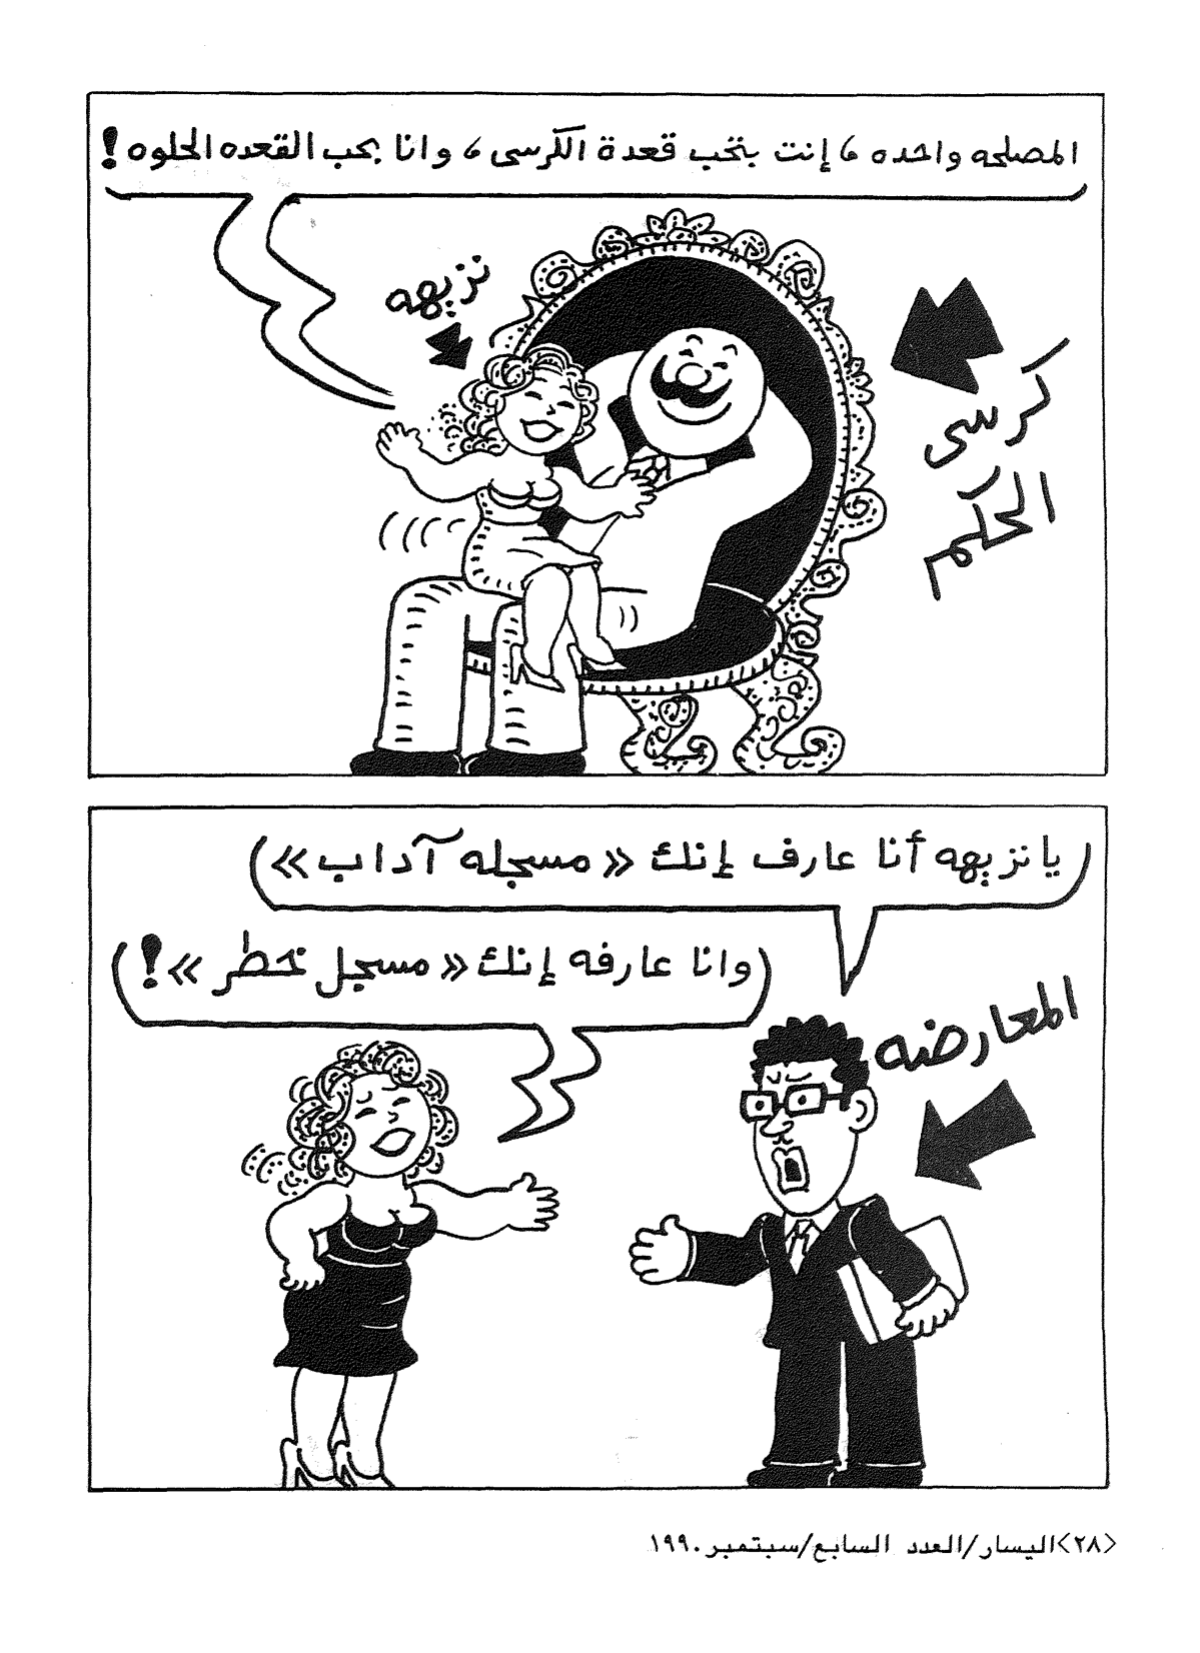 المصلحه واحده ، إنت بتحب قعدة الكرسى ، وانا بحب القعده الحلوه !
نزيهه
كرسى
الحكم
يا نزيهه أنا عارف إنك «مسجله آداب»
وانا عارفه إنك «مسجل خطر» !
المعارضه
<٢٨>اليسار/العدد السابع/سبتمبر ١٩٩٠